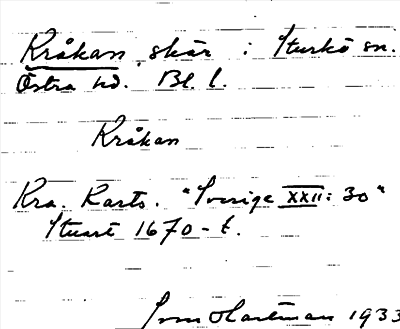 Kråkan, skär i Sturkö sn.
Östra hd. Bl. l.
Kråkan
Kra. Karts. "Sverige XXII: 30"
Stuart 1670-t.
Sven Hartman 1933